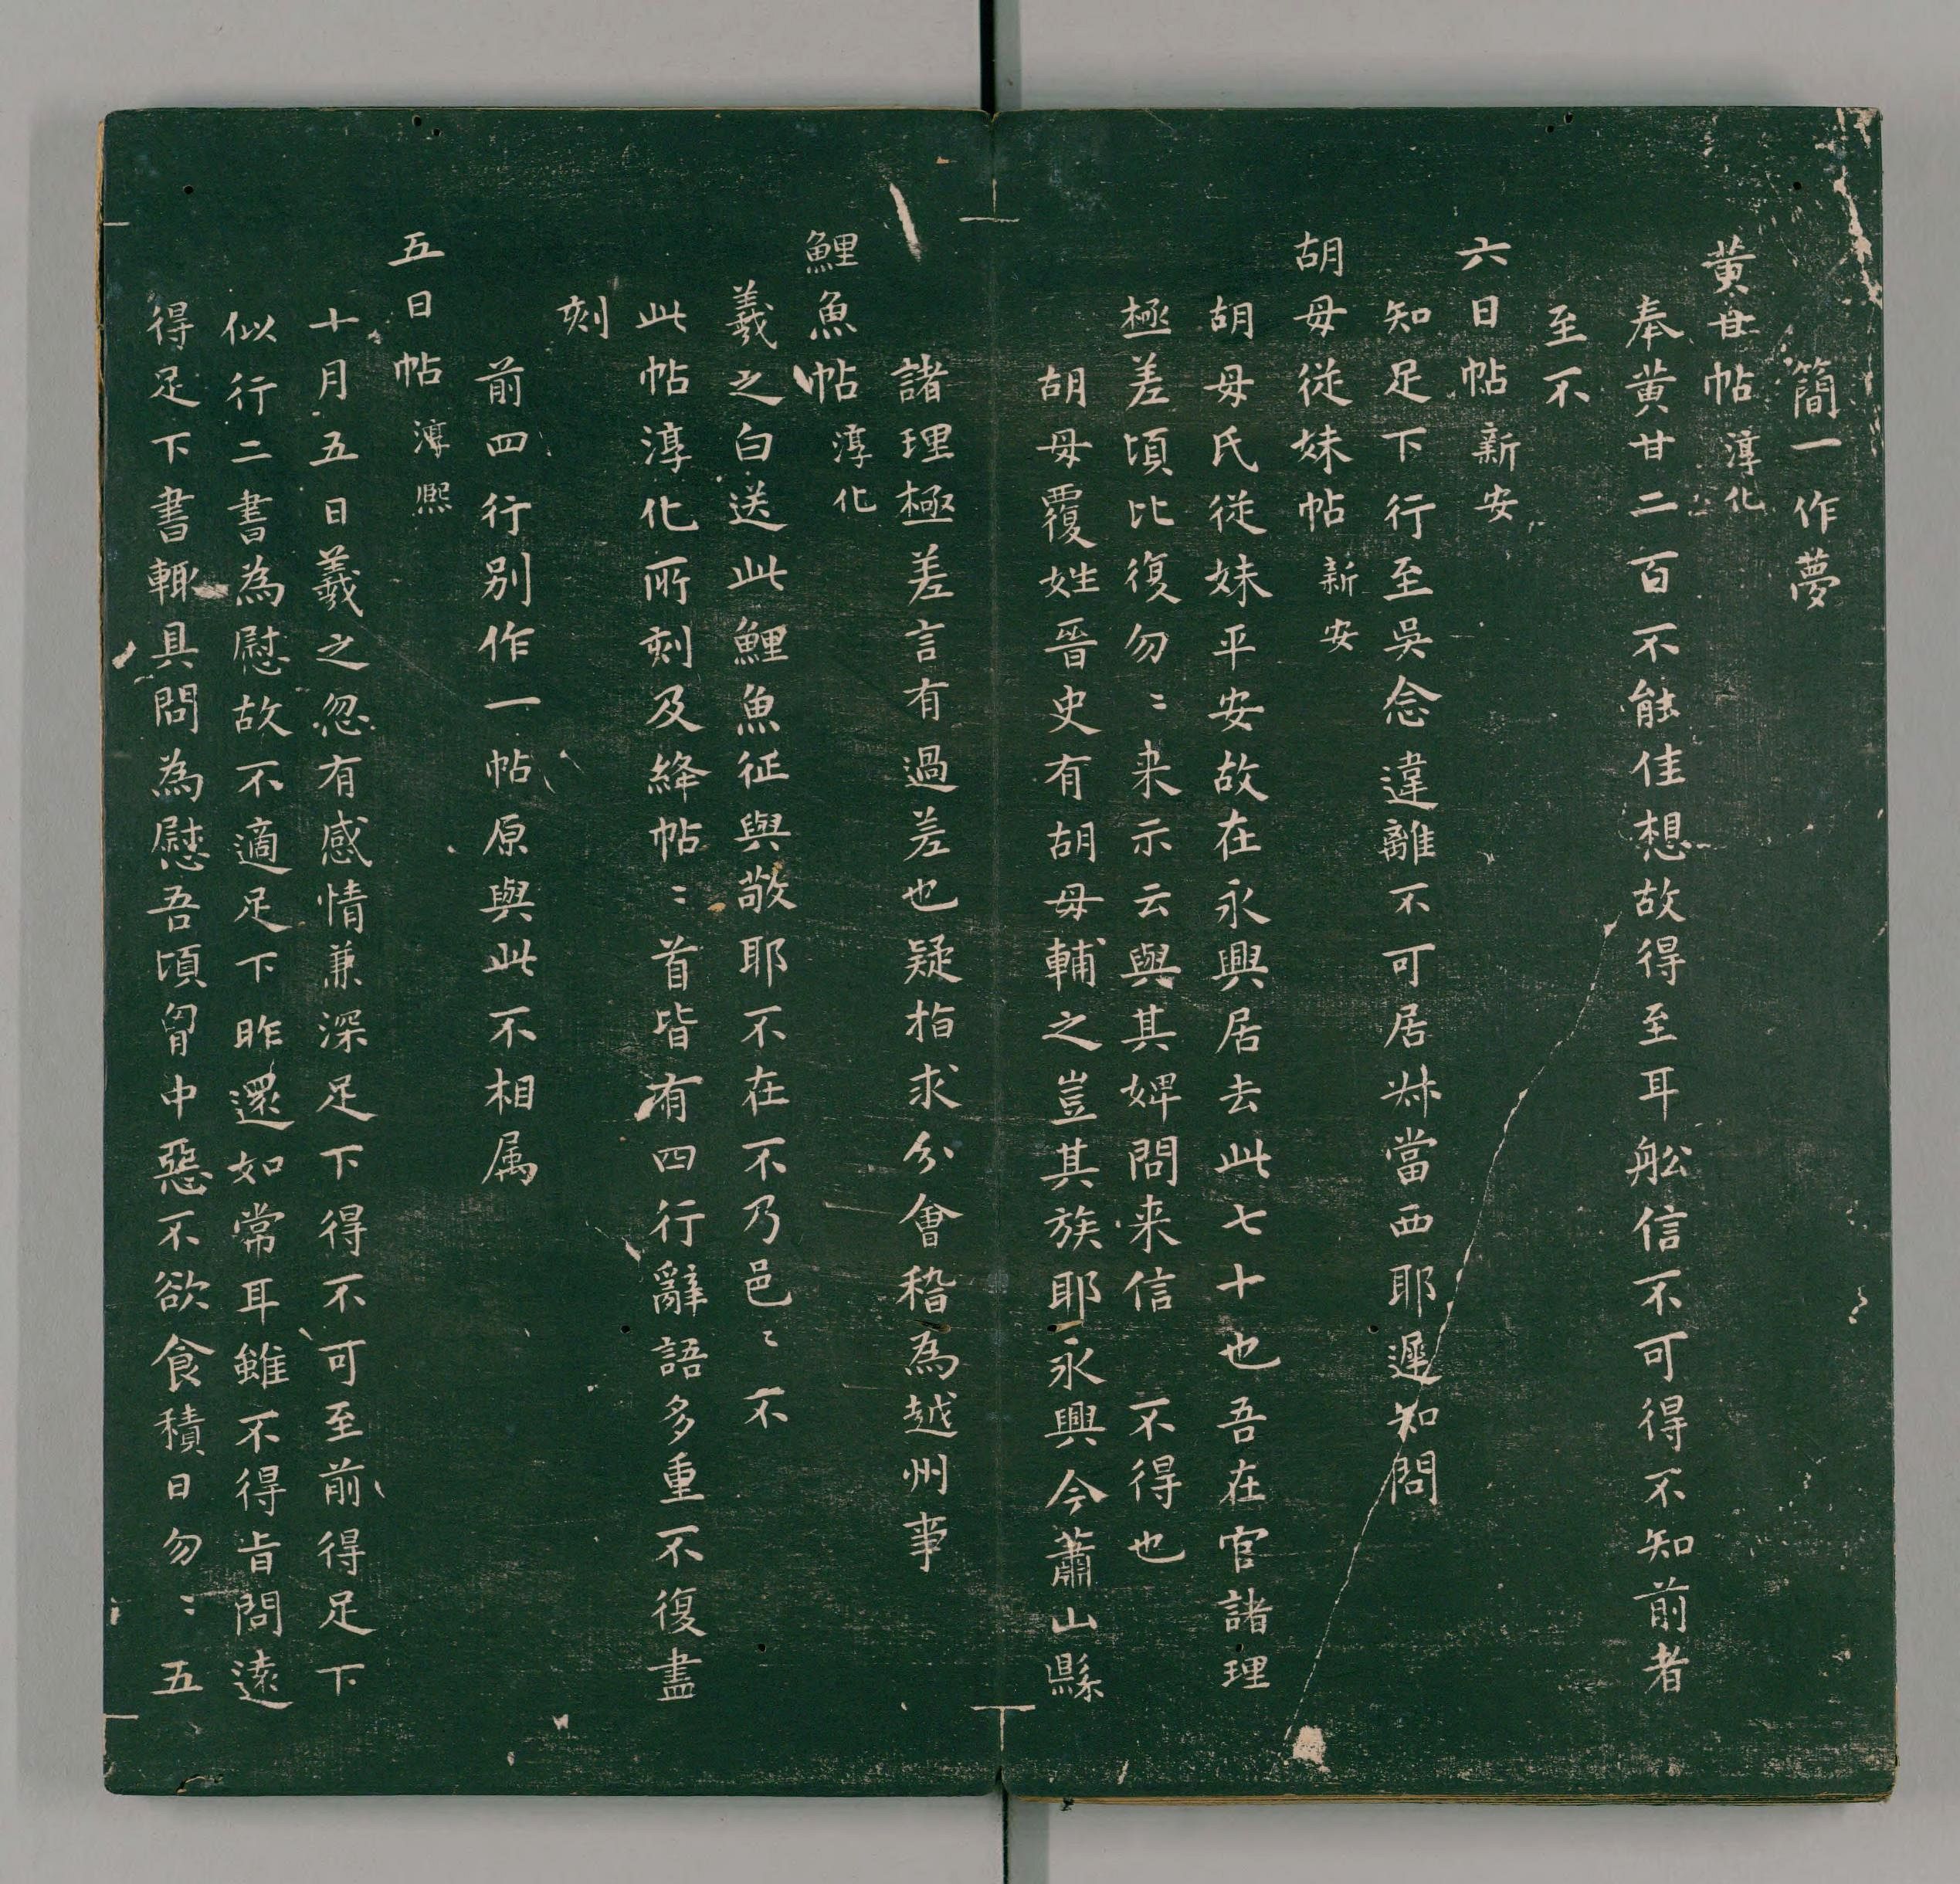 簡一作夢
黃甘帖 淳化
奉黃甘二百不能佳想故得至耳舩信不可得不知前者
至不
六日帖 新安
知足下行至吳念違離不可居叔當西耶遲知問
胡母從妹帖 新安
胡母氏從妹平安故在永興居去此七十也吾在官諸理
極差頃比復勿〻来示云與其婢問来信 不得也
胡母覆姓晉史有胡母輔之豈其族耶永興今蕭山縣
諸理極差言有過差也疑指求分會稽為越州事
鯉魚帖 淳化
羲之白送此鯉魚征與敬耶不在不乃邑〻不
此帖淳化所刻及絳帖〻首皆有四行辭語多重不復盡
刻
前四行别作一帖原與此不相属
五日帖 淳熙
十月五日羲之忽有感情兼深足下得不可至前得足下
似行二書為慰故不適足下昨還如常耳雖不得旨問遠
得足下書輙具問為慰吾頃胷中惡不欲食積日勿〻五